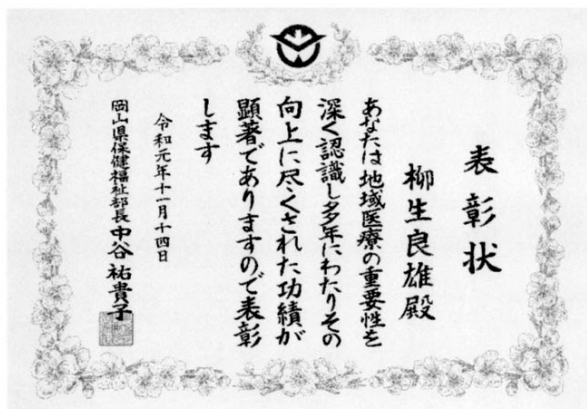 表彰状
柳生良雄殿
あなたは地域医療の重要性を
深く認識し多年にわたりその
向上に尽くされた功績が
顕著でありますので表彰
します
令和元年十一月十四日
岡山県保健福祉部長 中谷祐貴子